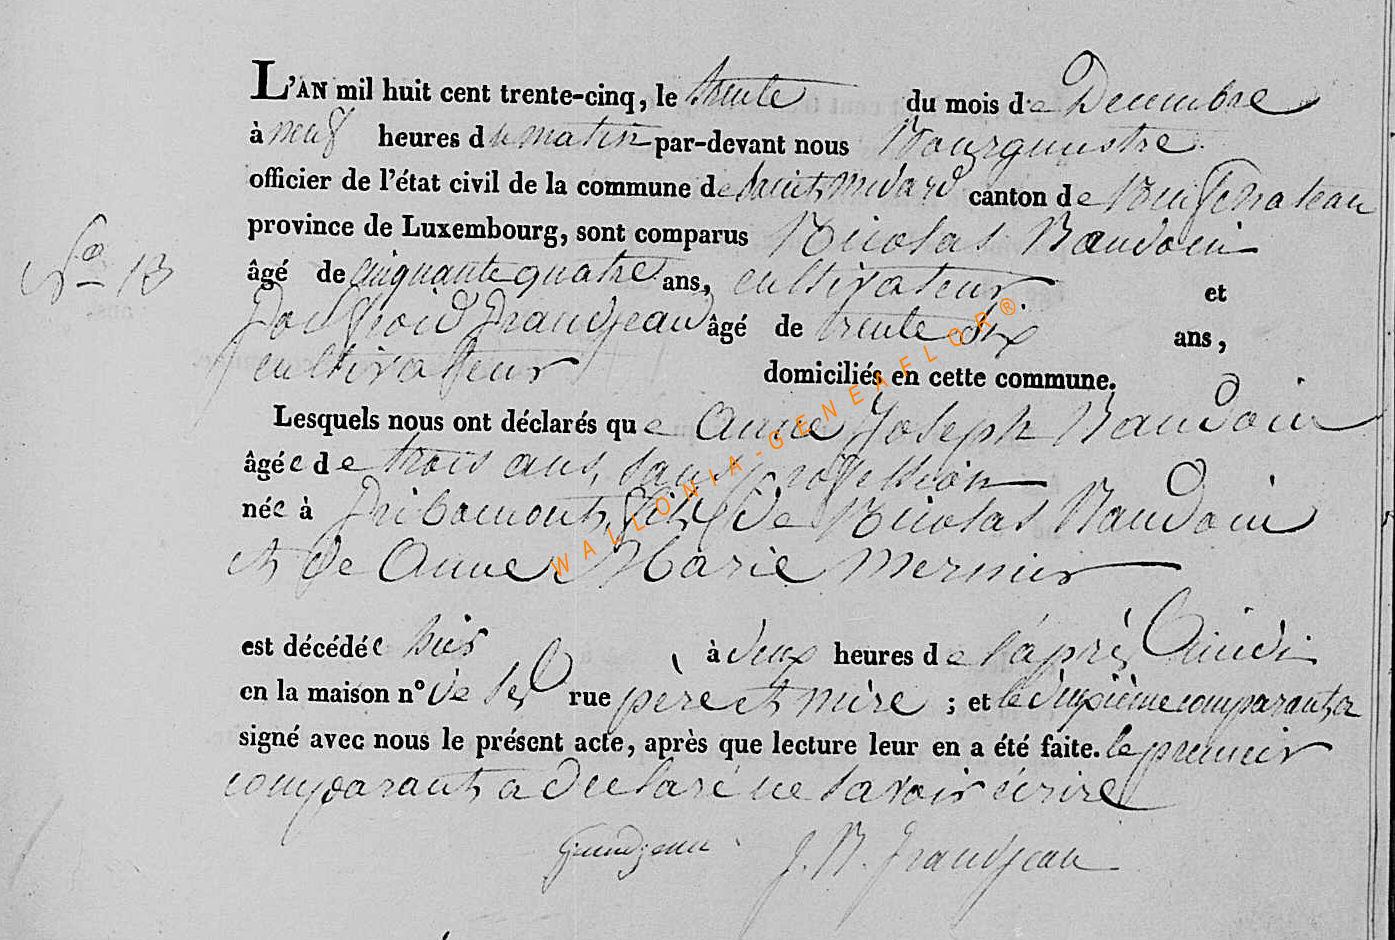 L'AN mil huit cent trente-cinq, le trente du mois de Decembre
à neuf heures du matin par-devant nous Bourguestre
officier de l'état civil de la commune de Saint medard canton de Neufchateau
province de Luxembourg, sont comparus Nicolas Baudoin
N° 13
âgé de cinquante quatre ans, cultivateur et
Grandjean âgé de trente six ans,
cultivateur domiciliés en cette commune.
Lesquels nous ont déclarés que anne Joseph Baudoin
âgée de trois ans, sans profession
née à Pribamont, fille de Nicolas Baudoin
et de Anne Marie mernier
est décédée hier à deux heures de l'après midi
en la maison n° de ses rue père et mère ; et le deuxième comparant a
signé avec nous le présent acte, après que lecture leur en a été faite. le premier
comparant a declaré ne savoir écrire
Grandjean J. N. Grandjean
WALLONIA-GENEAFLOR®